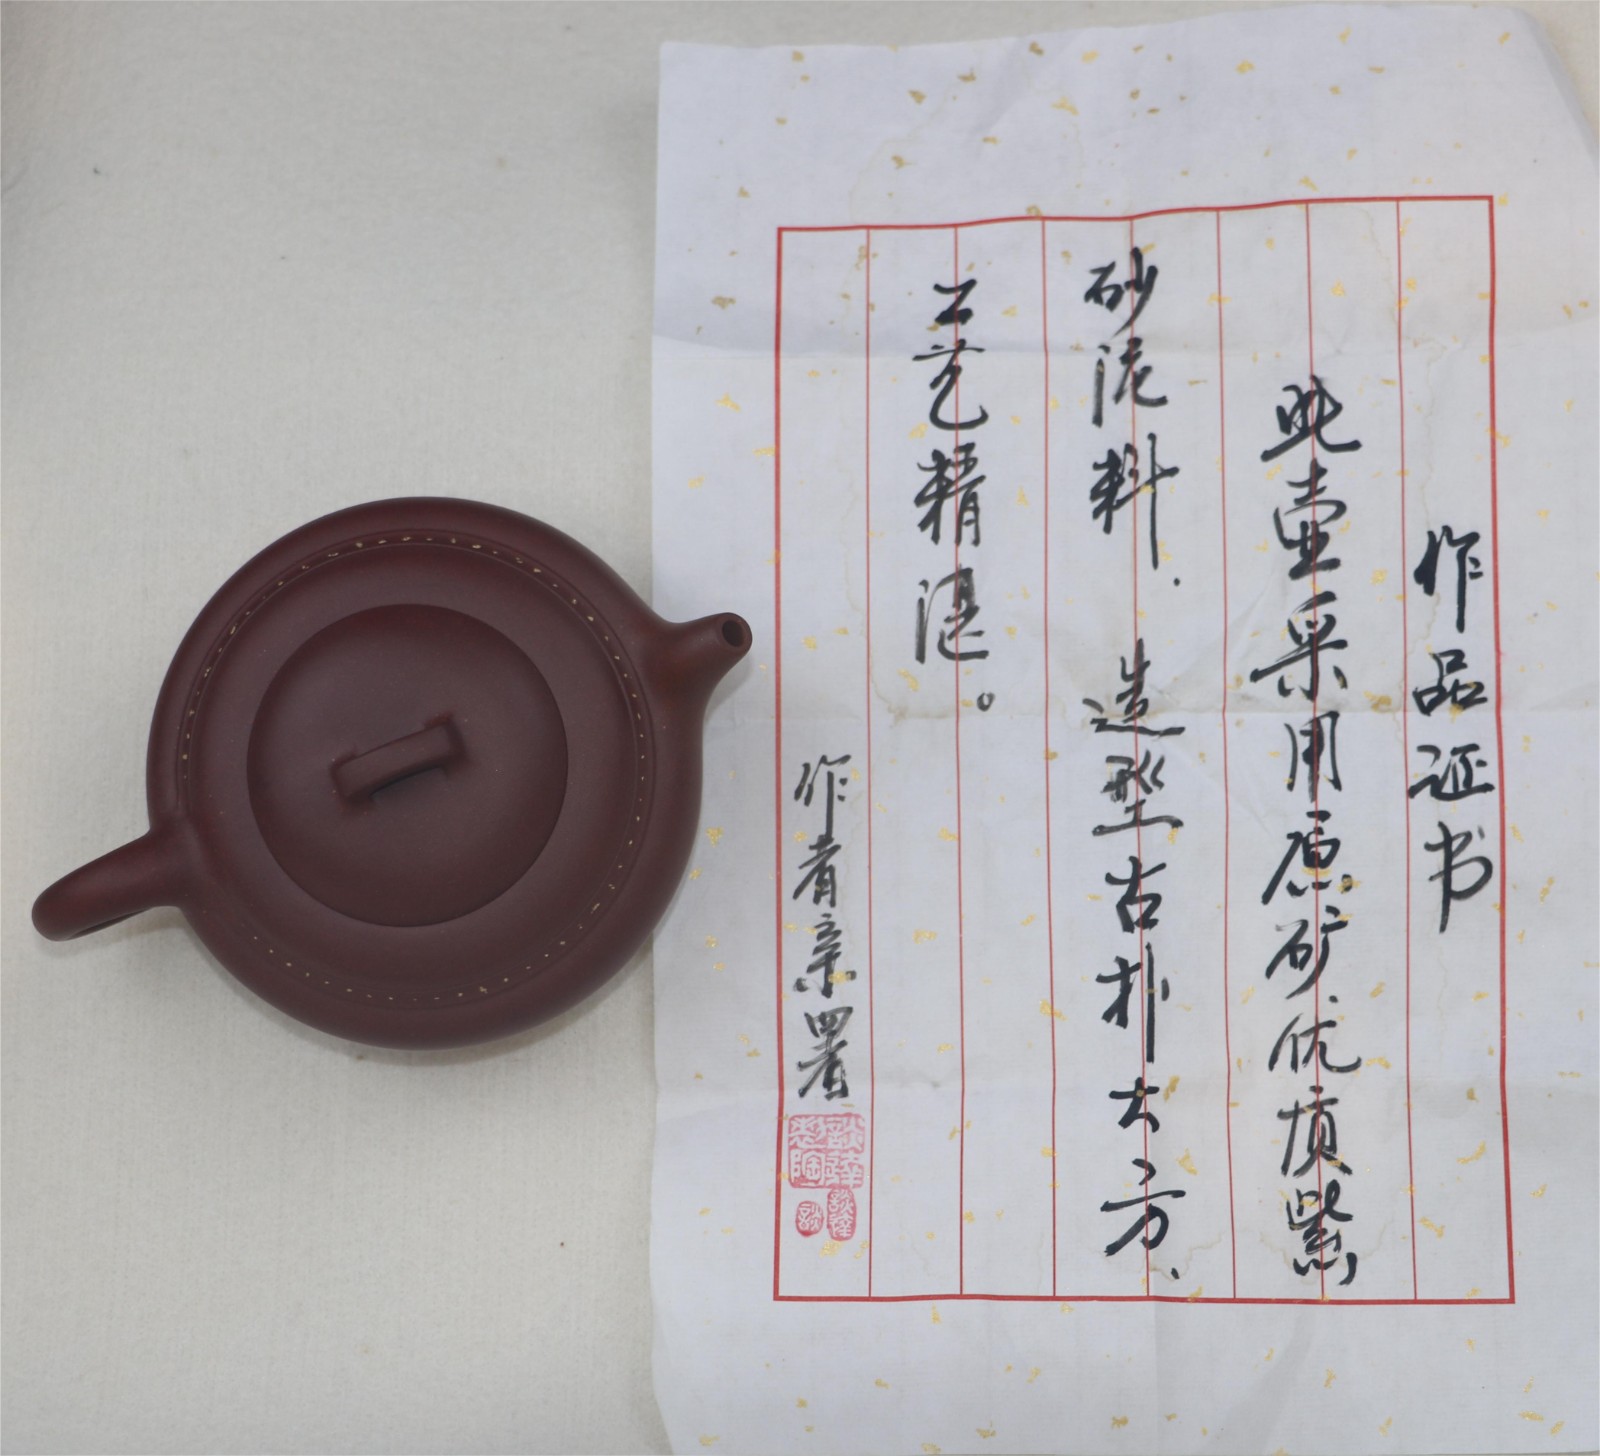 作品证书
此壶采用原矿、优质紫
砂泥料、造型古朴大方、
工艺精湛。
作者亲署